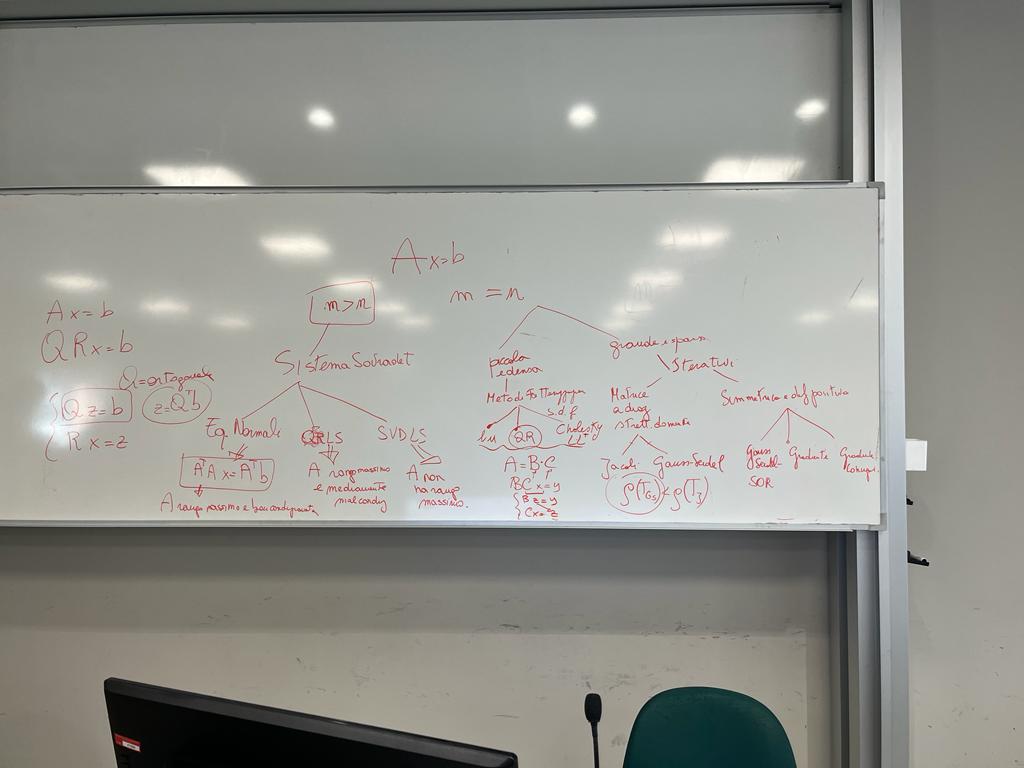 Ax=b
m>n
m=n
Ax=b
QRx=b
Q=ortogonale
{Qz=b z=Qᵀb
{Rx=z
Sistema Sovradet
Eq. Normali
AᵀAx=Aᵀb
A rango massimo e ben condizionata
QRLS
A rango massimo
e mediamente
mal condiz
SVDLS
A non
ha rango
massimo.
piccola
e densa
Metodi
s.d.p
LU
QR
Cholesky
LLᵀ
A=B·C
BCx=y
{Bz=y
{Cx=z
grande e sparsa
Iterativi
Matrice
a diag
strett. dominante
Jacobi
Gauss-Seidel
ρ(T_GS)<ρ(T_J)
Simmetrica e def positiva
Gauss
Seidel-
SOR
Gradiente
Gradiente